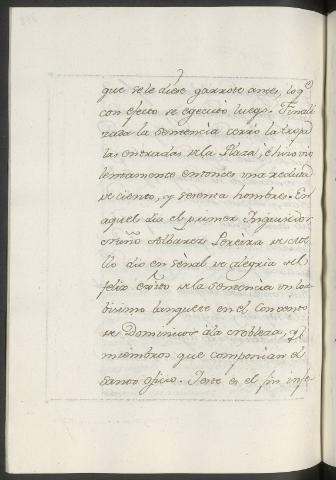 que se le diese garrote antes, lo q.e
con efecto se egecutò luego. Finali
zada la Sentencia cerrò la tropa
las entradas de la Plaza, è hizo vio
lentamente entonces una reduta
de ciento, y setenta hombres. En
aquel dia el primer Inquisidor,
Nuño Albares Pereira de
llo dio en señal de alegria del
felix exito de la Sentencia un
bisimo banquete en el Convento
de Dominicos à la nobleza, y
miembros que componian el
Santo Oficio. Este es el fin infe-